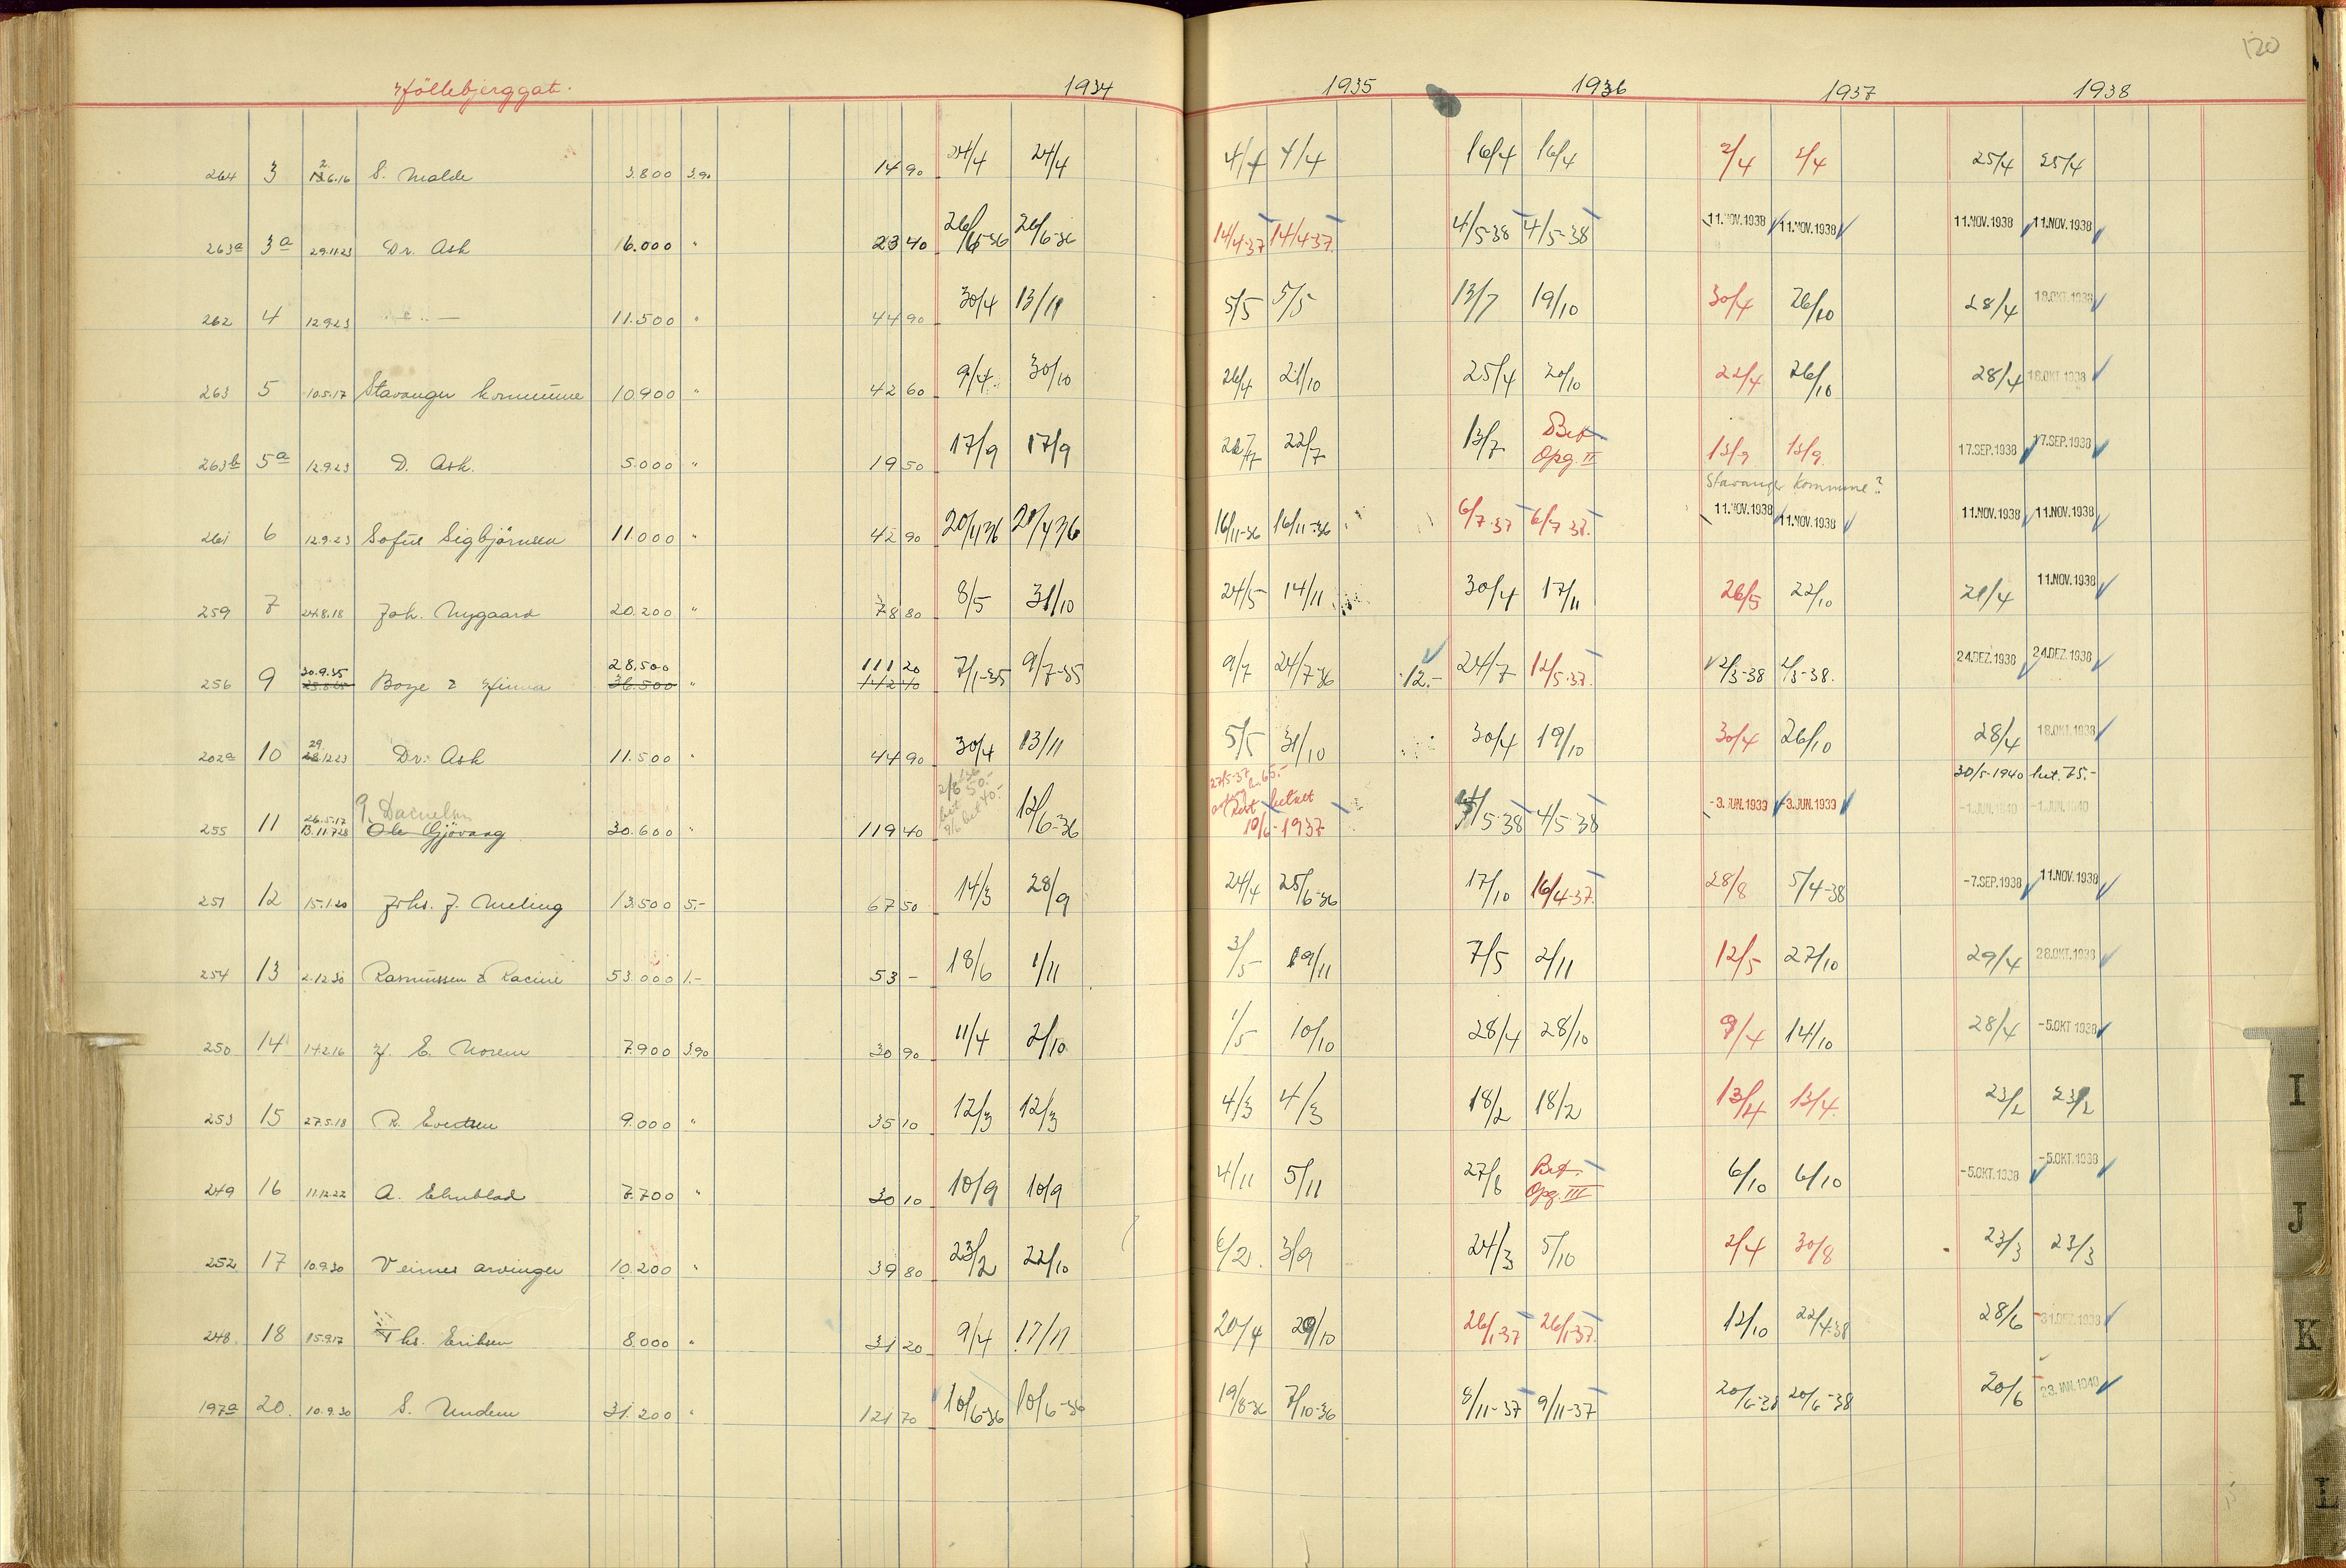 120
1934 1935 1936 1937 1938
264 3 S. Malde 3.800 3.90 14 90 24/4 24/4 4/4 4/4 16/4 16/4 2/4 2/4 25/4 25/4
263a 3a 29.11.23 Dr. Ask 16.000 " 23 40 26/6-36 26/6-36 14/4-37 14/4-37. 4/5-38 4/5-38 11.NOV.1938 11.NOV.1938 11.NOV.1938 11.NOV.1938
262 4 12.9.23 11.500 " 44 90 30/4 13/11 5/5 5/5 13/7 19/10 30/4 26/10 28/4 18.OKT.1938
263 5 10.5.17 Stavanger kommune 10.900 " 42 60 9/4 30/10 26/4 21/10 25/4 20/10 22/4 26/10 28/4 18.OKT.1938
263b 5a 12.9.23 D. Ask. 5.000 " 19 50 17/9 17/9 22/7 22/7 13/7 Bet Opg. II 13/9 13/9. 17.SEP.1938 17.SEP.1938
Stavanger kommune?
261 6 12.9.23 Sofie Sigbjörnsen 11.000 " 42 90 16/11-36 16/11-36 6/7-37 6/7-37. 11.NOV.1938 11.NOV.1938 11.NOV.1938 11.NOV.1938
259 7 24.8.18 Joh. Nygaard 20.200 " 78 80 8/5 31/10 24/5 14/11 30/4 17/11 26/5 22/10 21/4 11.NOV.1938
30.9.35 28.500 111 20
256 9 Boye & Hinna 36.500 " 7/1-35 9/7-35 9/7 24/7-36 12.- 24/7 12/5-37. 2/3-38 2/3-38. 24.DEZ.1938 24.DEZ.1938
202a 10 29.12.23 Dr. Ask 11.500 " 44 90 30/4 13/11 5/5 31/10 30/4 19/10 30/4 26/10 28/4 18.OKT.1938
2/6 36 bet 50.- 27/5-37 65.- 30/5-1940 bet. 75.-
9/6 bet 40.- Rest betalt
255 11 26.5.17 13.11.28 Ole Gjövaag 30.600 " 119 40 12/6-36 10/6-1937 4/5-38 4/5-38 -3.JUN.1939 -3.JUN.1939 -1.JUN.1940 -1.JUN.1940
251 12 15.1.20 Johs. J. Meling 13.500 5.- 67 50 14/3 28/9 24/4 25/6-36 17/10 16/4-37. 28/8 5/4-38 -7.SEP.1938 11.NOV.1938
254 13 2.12.30 Rasmussen & Racine 53.000 1.- 53 - 18/6 1/11 3/5 19/11 7/5 2/11 12/5 27/10 29/4 28.OKT.1938
250 14 14.2.16 E. Norem 7.900 3.90 30 90 11/4 2/10 1/5 10/10 28/4 28/10 9/4 14/10 28/4 -5.OKT.1938
253 15 27.5.18 R. Evertsen 9.000 " 35 10 12/3 12/3 4/3 4/3 18/2 18/2 13/4 13/4. 23/2 23/2
249 16 11.12.22 A. Ekelblad 7.700 " 30 10 10/9 10/9 4/11 5/11 27/8 Bet. Opg. III 6/10 6/10 -5.OKT.1938 -5.OKT.1938
252 17 10.9.30 arvinger 10.200 " 39 80 23/2 22/10 6/2. 3/9 24/3 5/10 2/4 30/8 23/3 23/3
248. 18 15.9.17 Ths. Eriksen 8.000 " 31 20 9/4 17/11 20/4 29/10 26/1-37 26/1-37. 12/10 22/4-38 28/6 31.DEZ.1938
197a 20. 10.9.30 S. Undem 31.200 " 121 70 10/6-36 10/6-36 19/8-36 7/10-36 8/11-37 9/11-37 20/6-38 20/6-38 20/6 23.JAN.1940
I
J
K
L